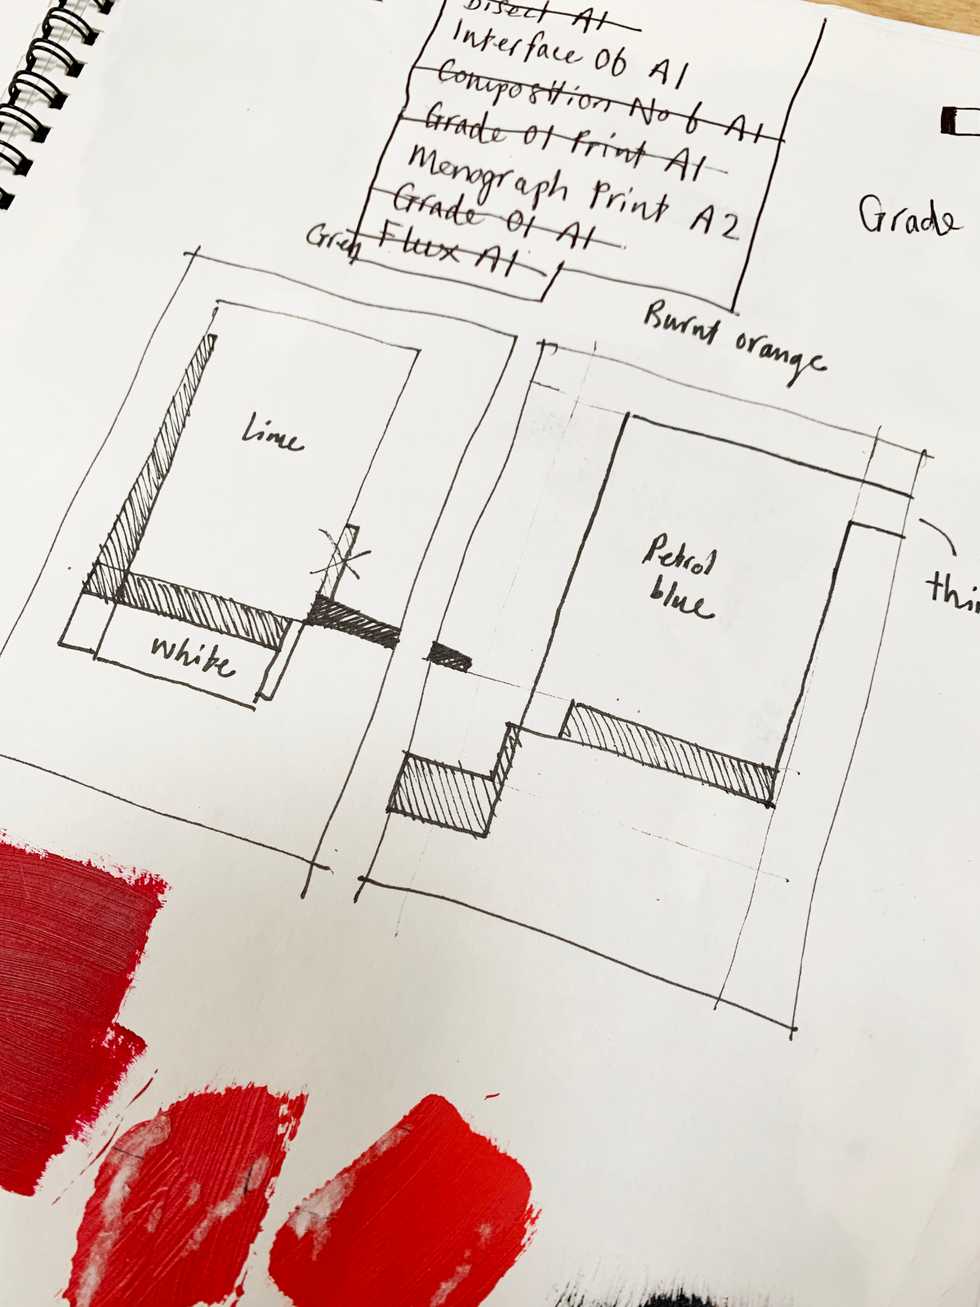 Disect A1
Interface 06 A1
Composition No 6 A1
Grade 01 Print A1
Menograph Print A2
Grade 01 A1
Flux A1
Grade
Burnt orange
Lime
Petrol
blue
White